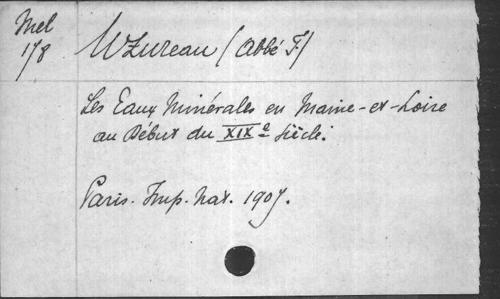 Mel
178
Uzureau (Abbé F.)
Les Eaux Minérales en Maine-et-Loire
au Début du XIXe Siècle.
Paris. Imp. Nat. 1907.